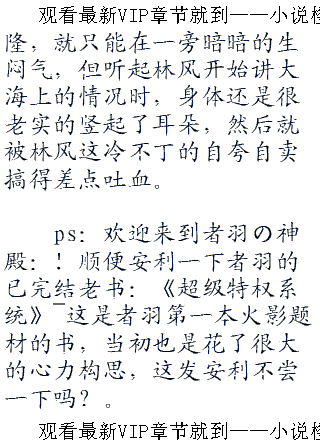 观看最新VIP章节就到——小说检
隆，就只能在一旁暗暗的生
闷气，但听起林风开始讲大
海上的情况时，身体还是很
老实的竖起了耳朵，然后就
被林风这冷不丁的自夸自卖
搞得差点吐血。
ps：欢迎来到者羽の神
殿：！顺便安利一下者羽的
已完结老书：《超级特权系
统》 这是者羽第一本火影题
材的书，当初也是花了很大
的心力构思，这发安利不尝
一下吗？。
观看最新VIP章节就到——小说检